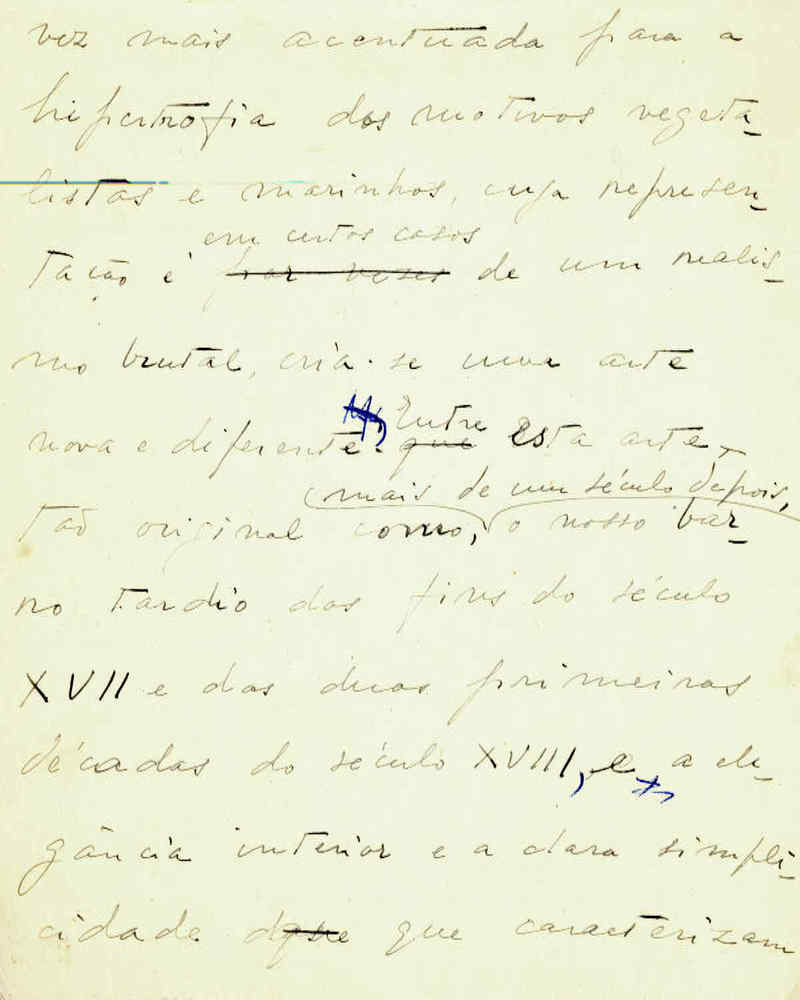 vez mais acentuada para a
hipertrofia dos motivos vegeta-
listas e marinhos, cuja represen-
em certos casos
tação é por vezes de um realis-
mo brutal, cria-se uma arte
Entre
nova e diferente. que Esta arte,
mais de um século depois,
tão original como, o nosso bar-
ro tardio dos fins do século
XVII e das duas primeiras
décadas do século XVIII, e a ele-
gância interior e a clara simpli-
cidade que caracterizam